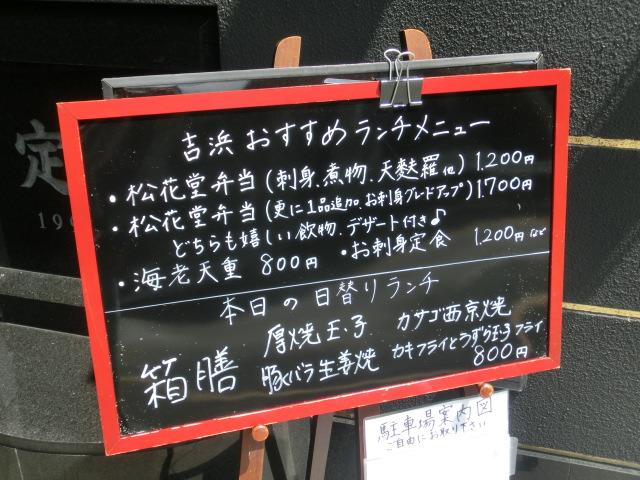 吉浜 おすすめランチメニュー
・松花堂弁当(刺身、煮物、天麩羅他) 1,200円
・松花堂弁当(更に1品追加、お刺身グレードアップ) 1,700円
どちらも嬉しい飲物、デザート付き♪
・海老天重 800円 ・お刺身定食 1,200円など
本日の日替りランチ
箱膳 厚焼玉子 カサゴ西京焼
豚バラ生姜焼 カキフライとうずら玉子フライ
800円
駐車場案内図
ご自由にお取り下さい
定
19